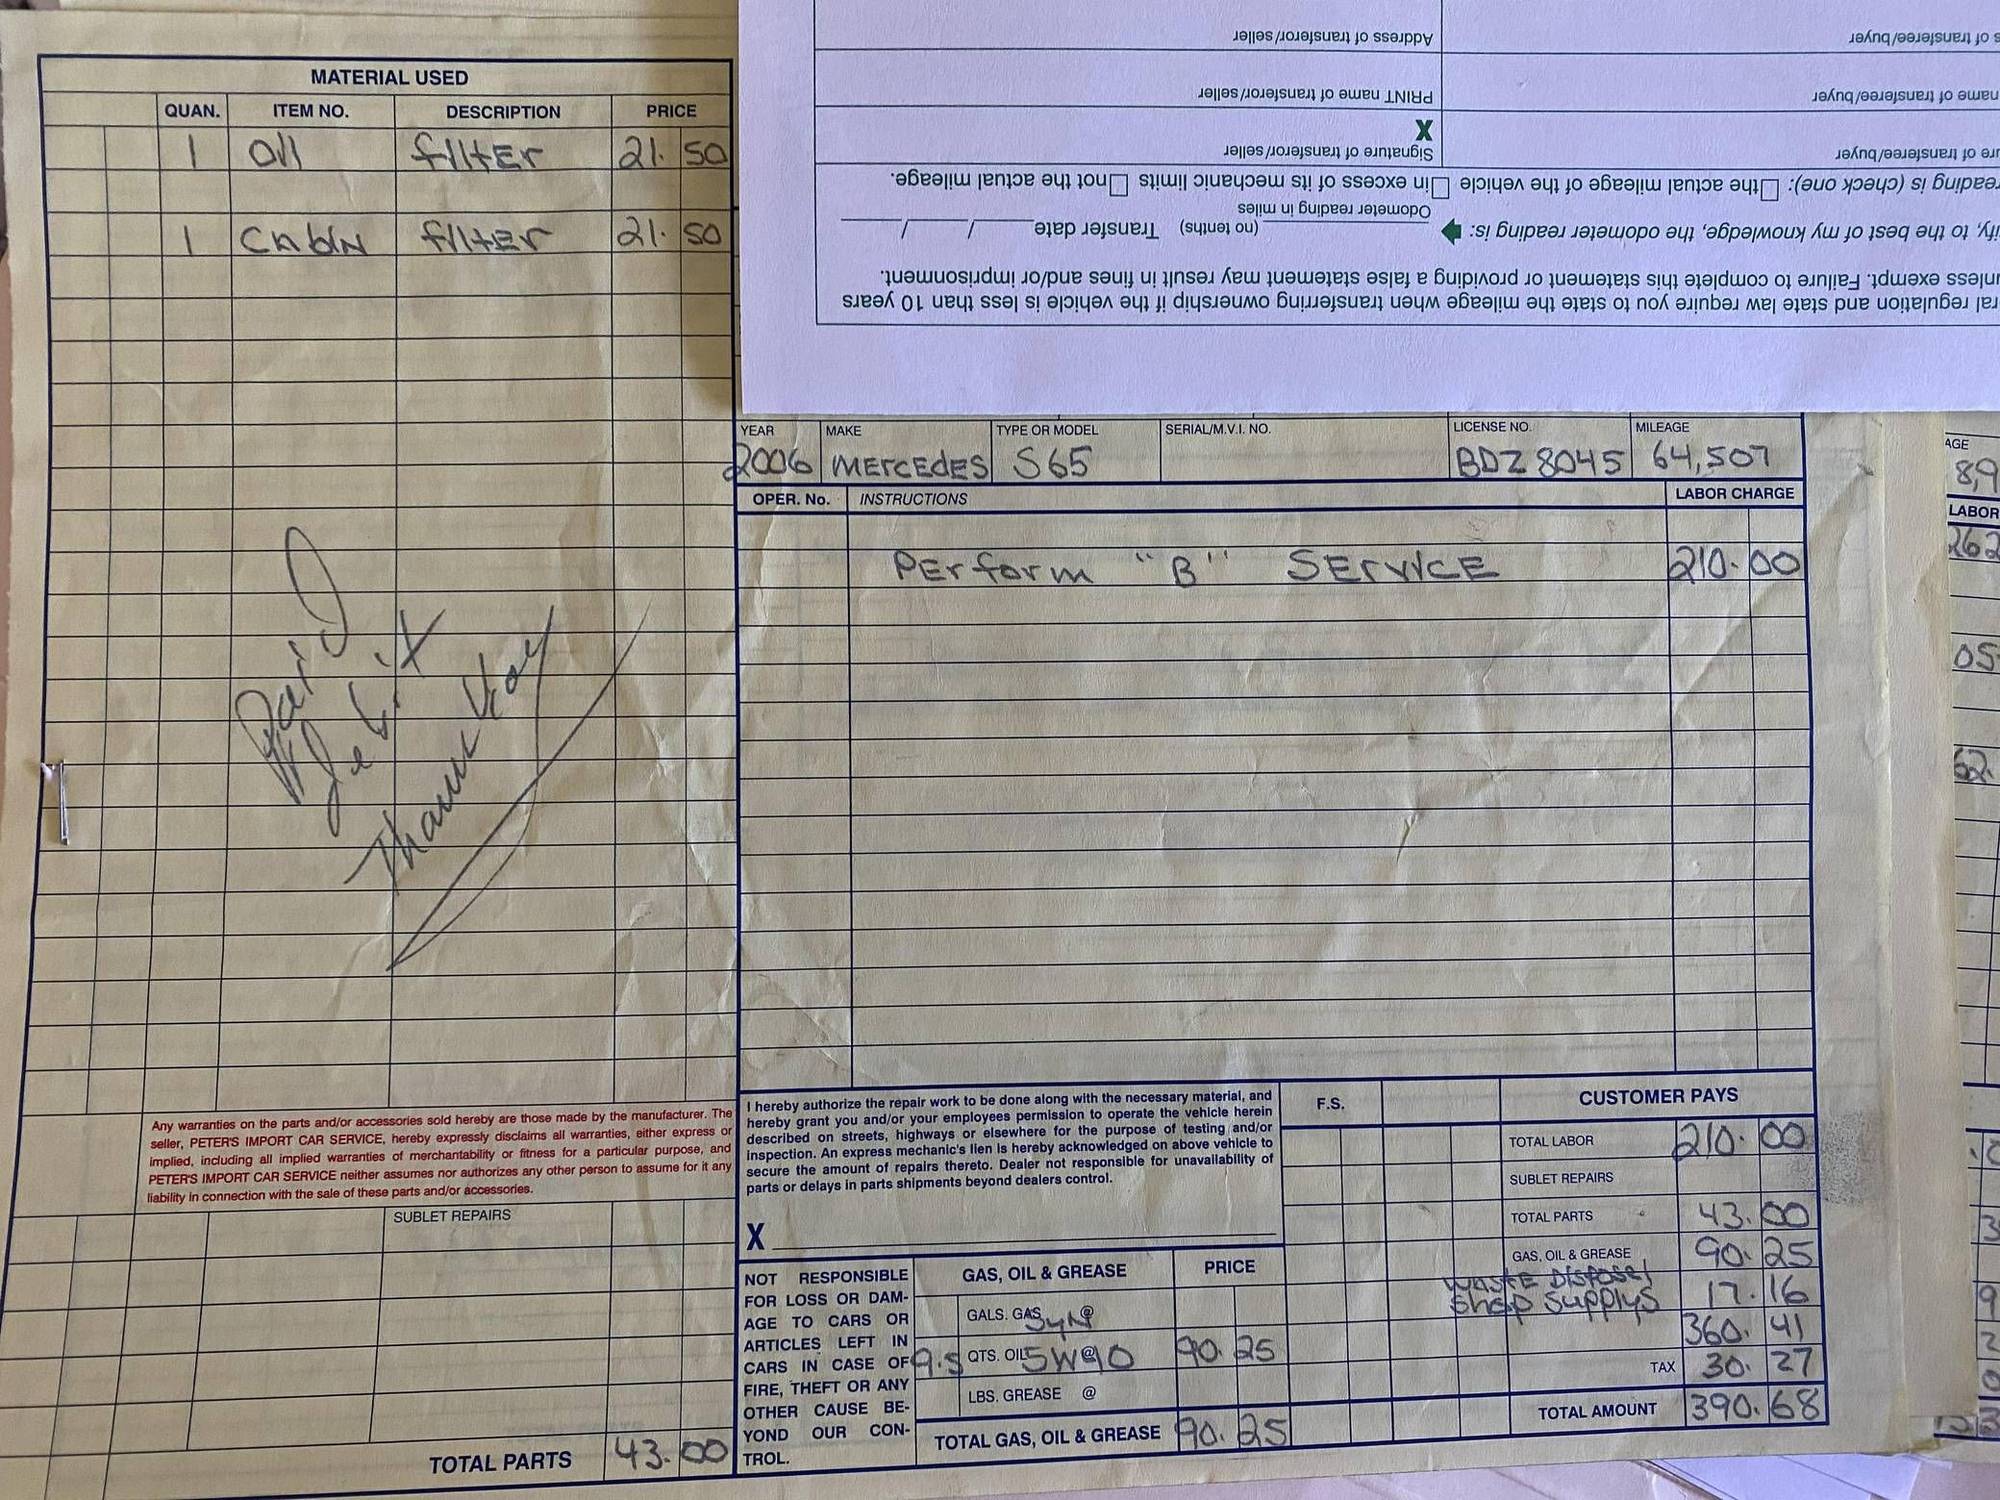 MATERIAL USED
QUAN. ITEM NO. DESCRIPTION PRICE
1 Oil filter 21. 50
1 Cabin filter 21. 50
Paid
Debit
Thank You
Any warranties on the parts and/or accessories sold hereby are those made by the manufacturer. The
seller, PETER'S IMPORT CAR SERVICE, hereby expressly disclaims all warranties, either express or
implied, including all implied warranties of merchantability or fitness for a particular purpose, and
PETER'S IMPORT CAR SERVICE neither assumes nor authorizes any other person to assume for it any
liability in connection with the sale of these parts and/or accessories.
SUBLET REPAIRS
TOTAL PARTS 43. 00
ral regulation and state law require you to state the mileage when transferring ownership if the vehicle is less than 10 years
unless exempt. Failure to complete this statement or providing a false statement may result in fines and/or imprisonment.
ify, to the best of my knowledge, the odometer reading is: (no tenths) Transfer date / /
Odometer reading in miles
reading is (check one): the actual mileage of the vehicle in excess of its mechanic limits not the actual mileage.
re of transferee/buyer Signature of transferor/seller
X
name of transferee/buyer PRINT name of transferor/seller
s of transferee/buyer Address of transferor/seller
YEAR MAKE TYPE OR MODEL SERIAL/M.V.I. NO. LICENSE NO. MILEAGE
2006 MERCEDES S65 BDZ 8045 64,507
OPER. No. INSTRUCTIONS LABOR CHARGE
Perform "B" SERVICE 210. 00
I hereby authorize the repair work to be done along with the necessary material, and
hereby grant you and/or your employees permission to operate the vehicle herein
described on streets, highways or elsewhere for the purpose of testing and/or
inspection. An express mechanic's lien is hereby acknowledged on above vehicle to
secure the amount of repairs thereto. Dealer not responsible for unavailability of
parts or delays in parts shipments beyond dealers control.
X
NOT RESPONSIBLE
FOR LOSS OR DAM-
AGE TO CARS OR
ARTICLES LEFT IN
CARS IN CASE OF
FIRE, THEFT OR ANY
OTHER CAUSE BE-
YOND OUR CON-
TROL.
GAS, OIL & GREASE PRICE
GALS. GAS @ Syn
9.5 QTS. OIL @ 5W40 90. 25
LBS. GREASE @
TOTAL GAS, OIL & GREASE 90. 25
F.S. CUSTOMER PAYS
TOTAL LABOR 210. 00
SUBLET REPAIRS
TOTAL PARTS 43. 00
GAS, OIL & GREASE 90. 25
WASTE Disposel
Shop Supplys 17. 16
360. 41
TAX 30. 27
TOTAL AMOUNT 390. 68
AGE
8,9
LABOR
262
05
62.